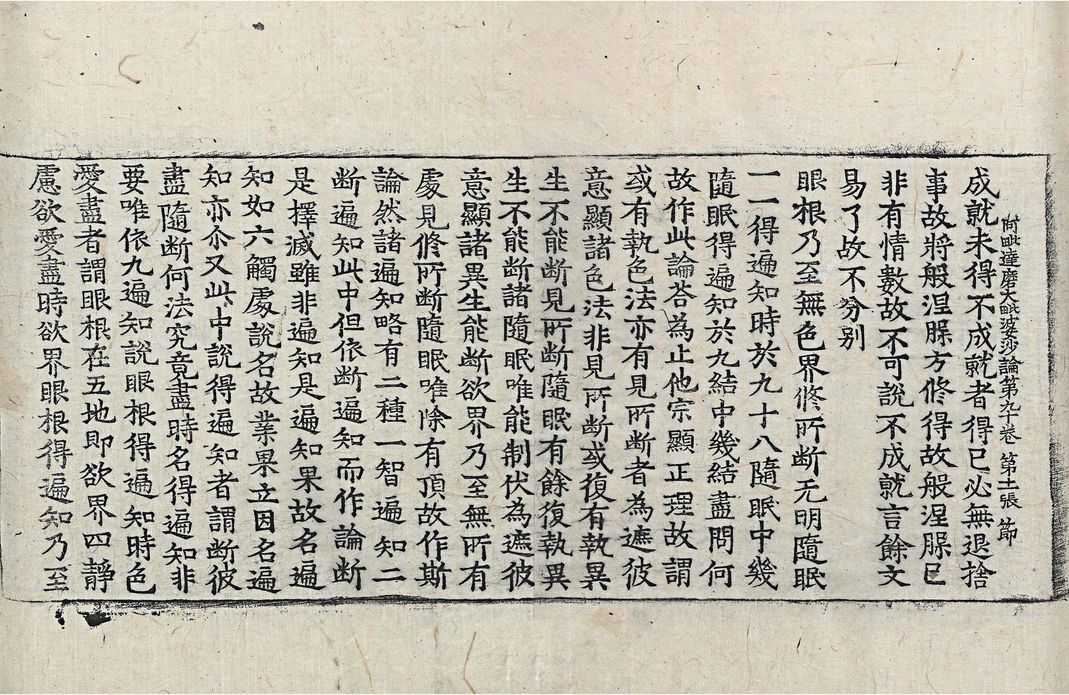 阿毗達磨大毗婆沙論第九十卷 第十一張 節
成就未得不成就者得已必無退捨
事故將般涅槃方修得故般涅槃已
非有情數故不可說不成就言餘文
易了故不分別
眼根乃至無色界修所斷无明隨眠
一一得遍知時於九十八隨眠中幾
隨眠得遍知於九結中幾結盡問何
故作此論荅為止他宗顯正理故謂
或有執色法亦有見所斷者為遮彼
意顯諸色法非見所斷或復有執異
生不能断見所断隨眠有餘復執異
生不能断諸隨眠唯能制伏為遮彼
意顯諸異生能断欲界乃至無所有
處見修所断隨眠唯除有頂故作斯
論然諸遍知略有二種一智遍知二
断遍知此中但依断遍知而作論断
是擇滅雖非遍知是遍知果故名遍
知如六觸處說名故業果立因名遍
知亦尒又此中說得遍知者謂断彼
盡隨断何法究竟盡時名得遍知非
要唯依九遍知說眼根得遍知時色
愛盡者謂眼根在五地即欲界四靜
慮欲愛盡時欲界眼根得遍知乃至